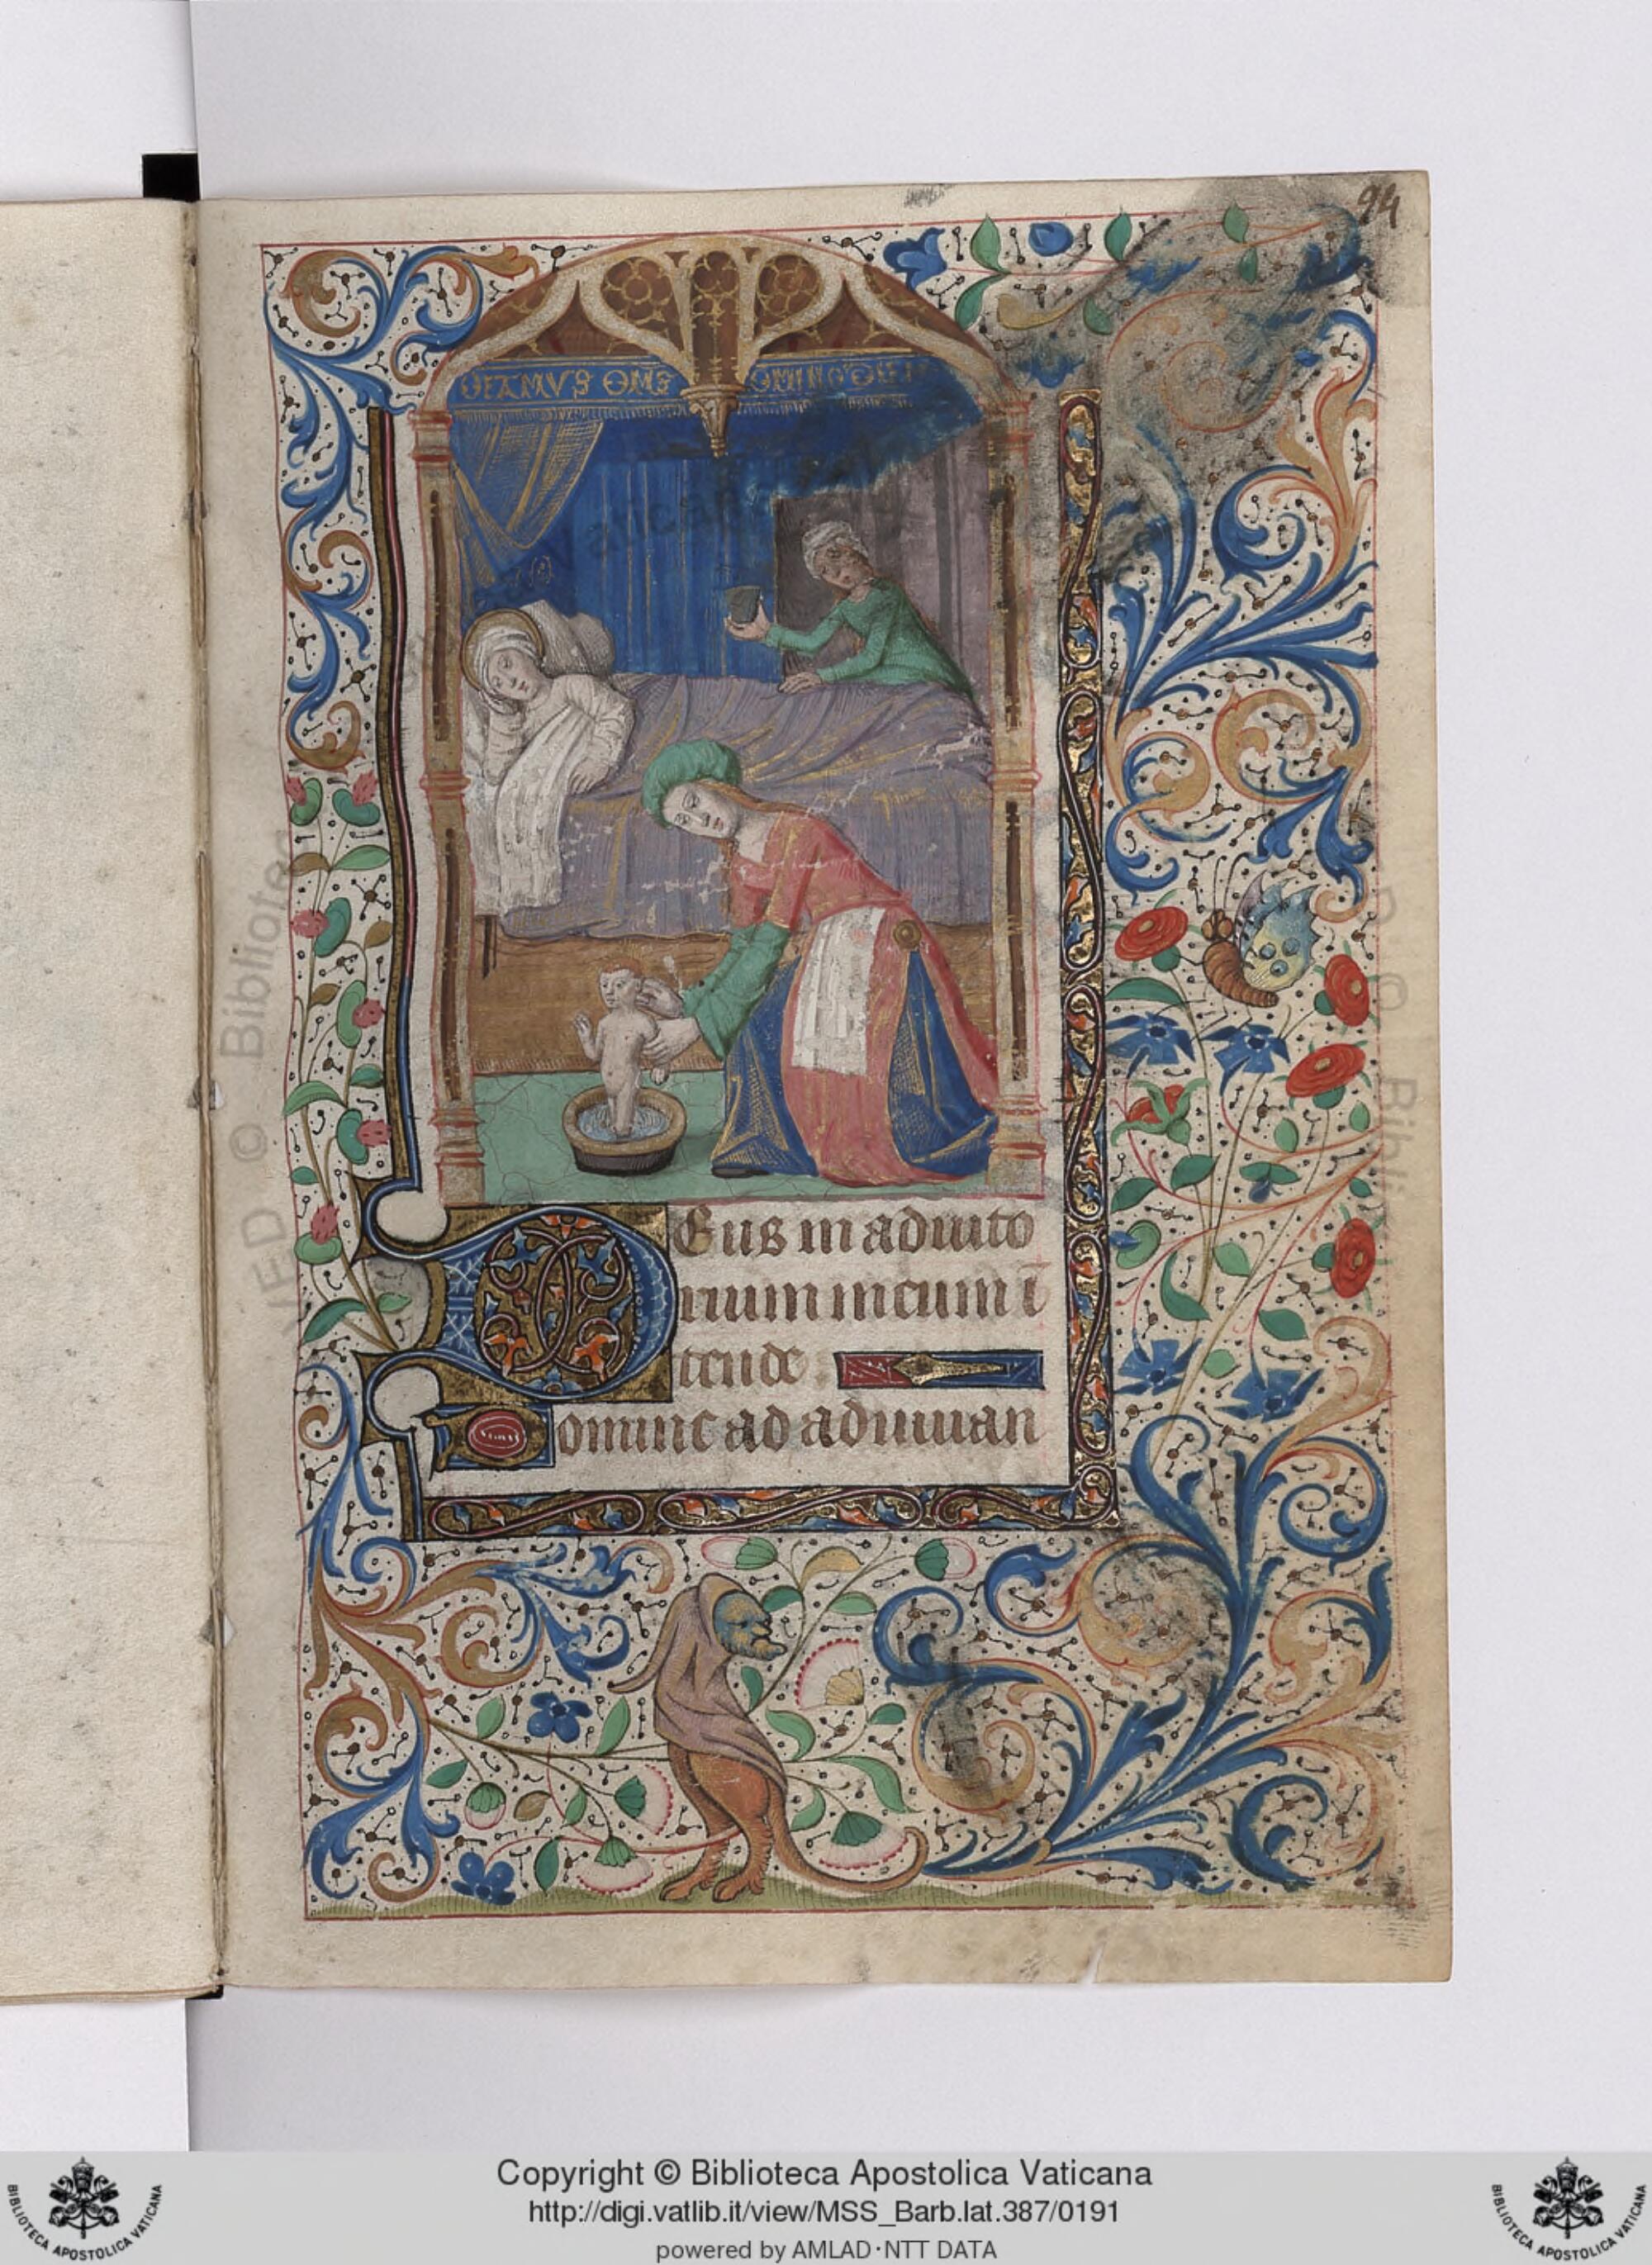 94
Eus in adiuto
rium meum ī
tende
omine ad adiuuan
Copyright © Biblioteca Apostolica Vaticana
http://digi.vatlib.it/view/MSS_Barb.lat.387/0191
powered by AMLAD·NTT DATA
BIBLIOTECA APOSTOLICA VATICANA
BIBLIOTECA APOSTOLICA VATICANA